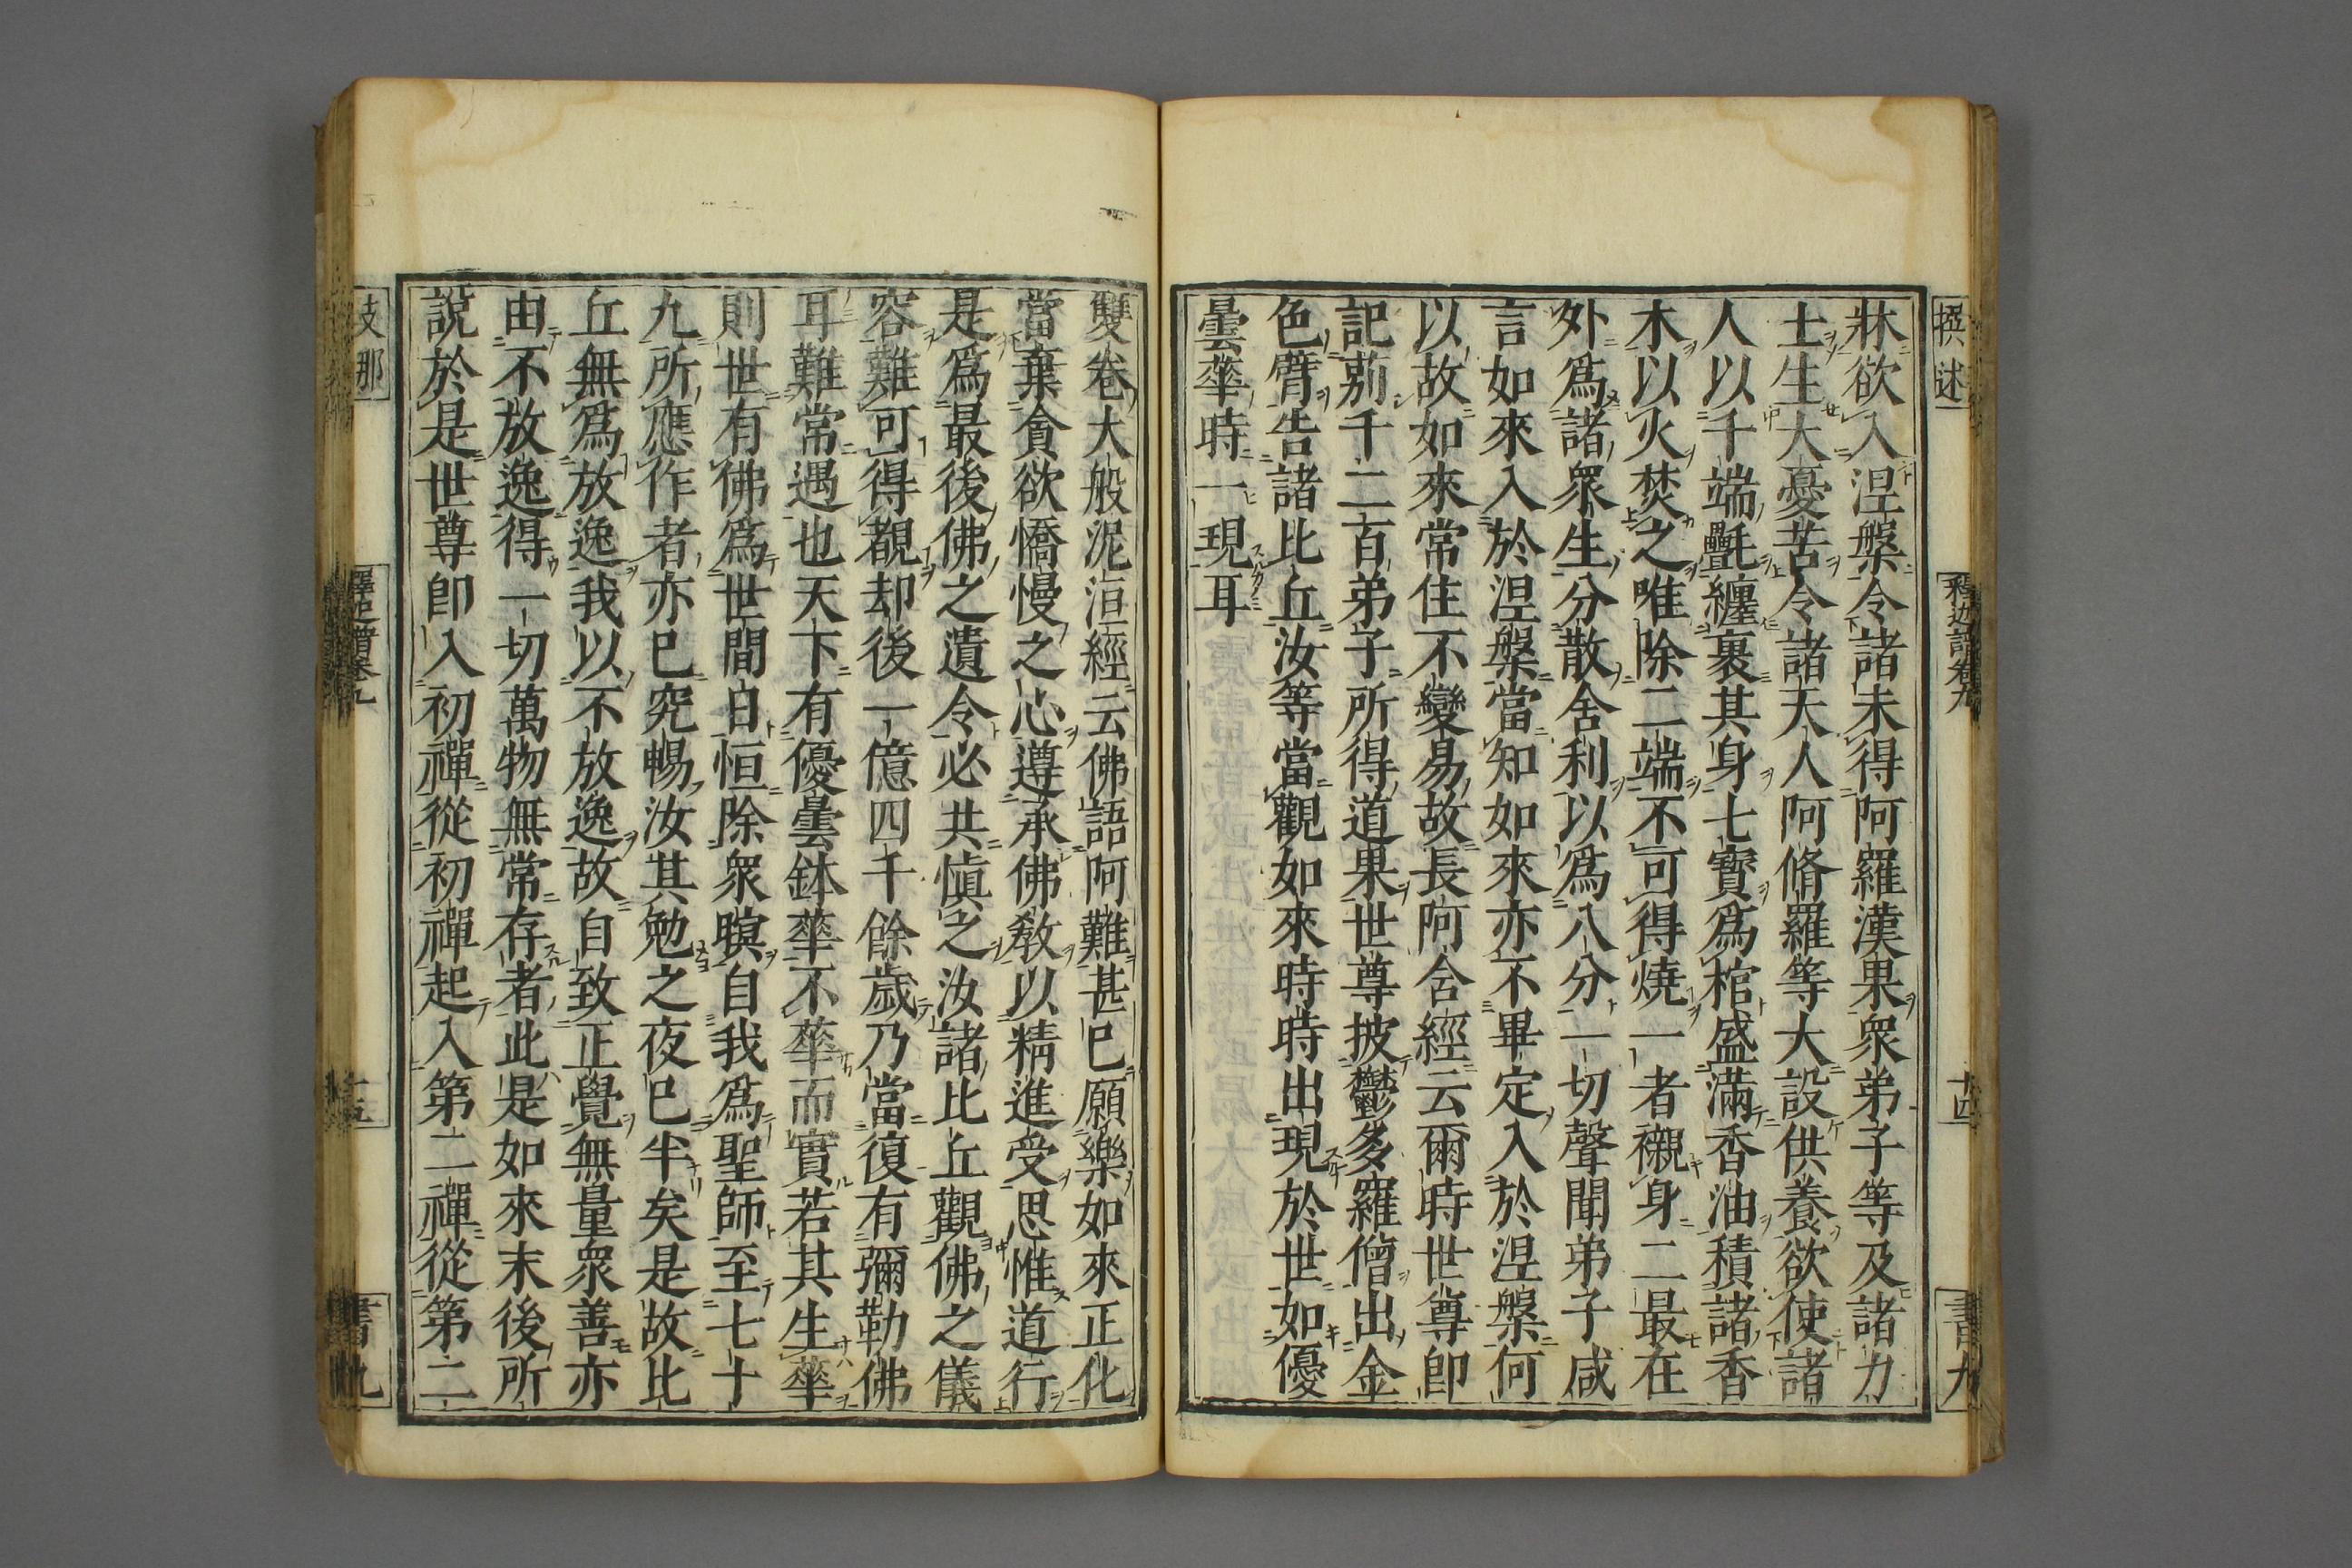 撰述
釋迦譜卷九
十四
書九
牀欲入涅槃令諸未得阿羅漢果衆弟子等及諸力
士生大憂苦令諸天人阿脩羅等大設供養欲使諸
人以千端氎纏裹其身七寶爲棺盛滿香油積諸香
木以火焚之唯除二端不可得燒一者襯身二最在
外爲諸衆生分散舍利以爲八分一切聲聞弟子咸
言如來入於涅槃當知如來亦不畢定入於涅槃何
以故如來常住不變易故長阿含經云爾時世尊即
記莂千二百弟子所得道果世尊披鬱多羅僧出金
色臂告諸比丘汝等當觀如來時時出現於世如優
曇華時一現耳
雙卷大般泥洹經云佛語阿難甚已願樂如來正化
當棄貪欲憍慢之心遵承佛教以精進受思惟道行
是爲最後佛之遺令必共慎之汝諸比丘觀佛之儀
容難可得覩却後一億四千餘歲乃當復有彌勒佛
耳難常遇也天下有優曇鉢華不華而實若其生華
則世有佛爲世間日恒除衆瞑自我爲聖師至七十
九所應作者亦已究暢汝其勉之夜已半矣是故比
丘無爲放逸我以不放逸故自致正覺無量衆善亦
由不放逸得一切萬物無常存者此是如來末後所
說於是世尊即入初禪從初禪起入第二禪從第二
支那
釋迦譜卷九
十五
書九